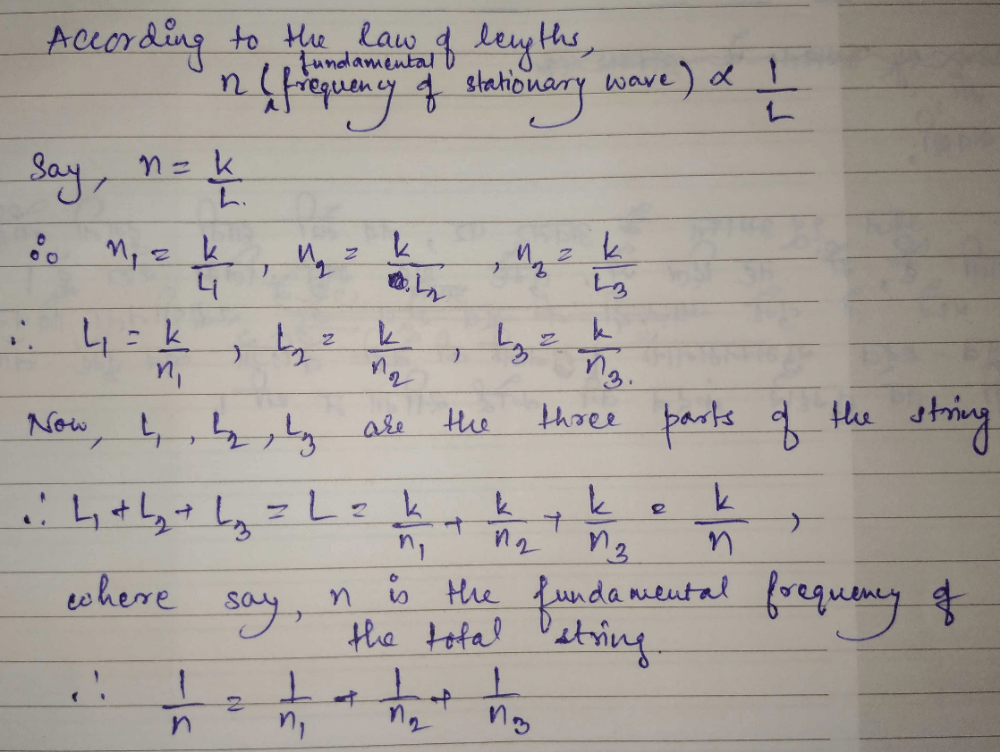 According to the law of lengths,
fundamental
n (frequency of stationary wave) ∝ 1/L
Say, n = k/L.
∴ n₁ = k/L₁, n₂ = k/L₂, n₃ = k/L₃
∴ L₁ = k/n₁, L₂ = k/n₂, L₃ = k/n₃.
Now, L₁, L₂, L₃ are the three parts of the string
∴ L₁ + L₂ + L₃ = L = k/n₁ + k/n₂ + k/n₃ = k/n,
where say, n is the fundamental frequency of
the total string.
∴ 1/n = 1/n₁ + 1/n₂ + 1/n₃